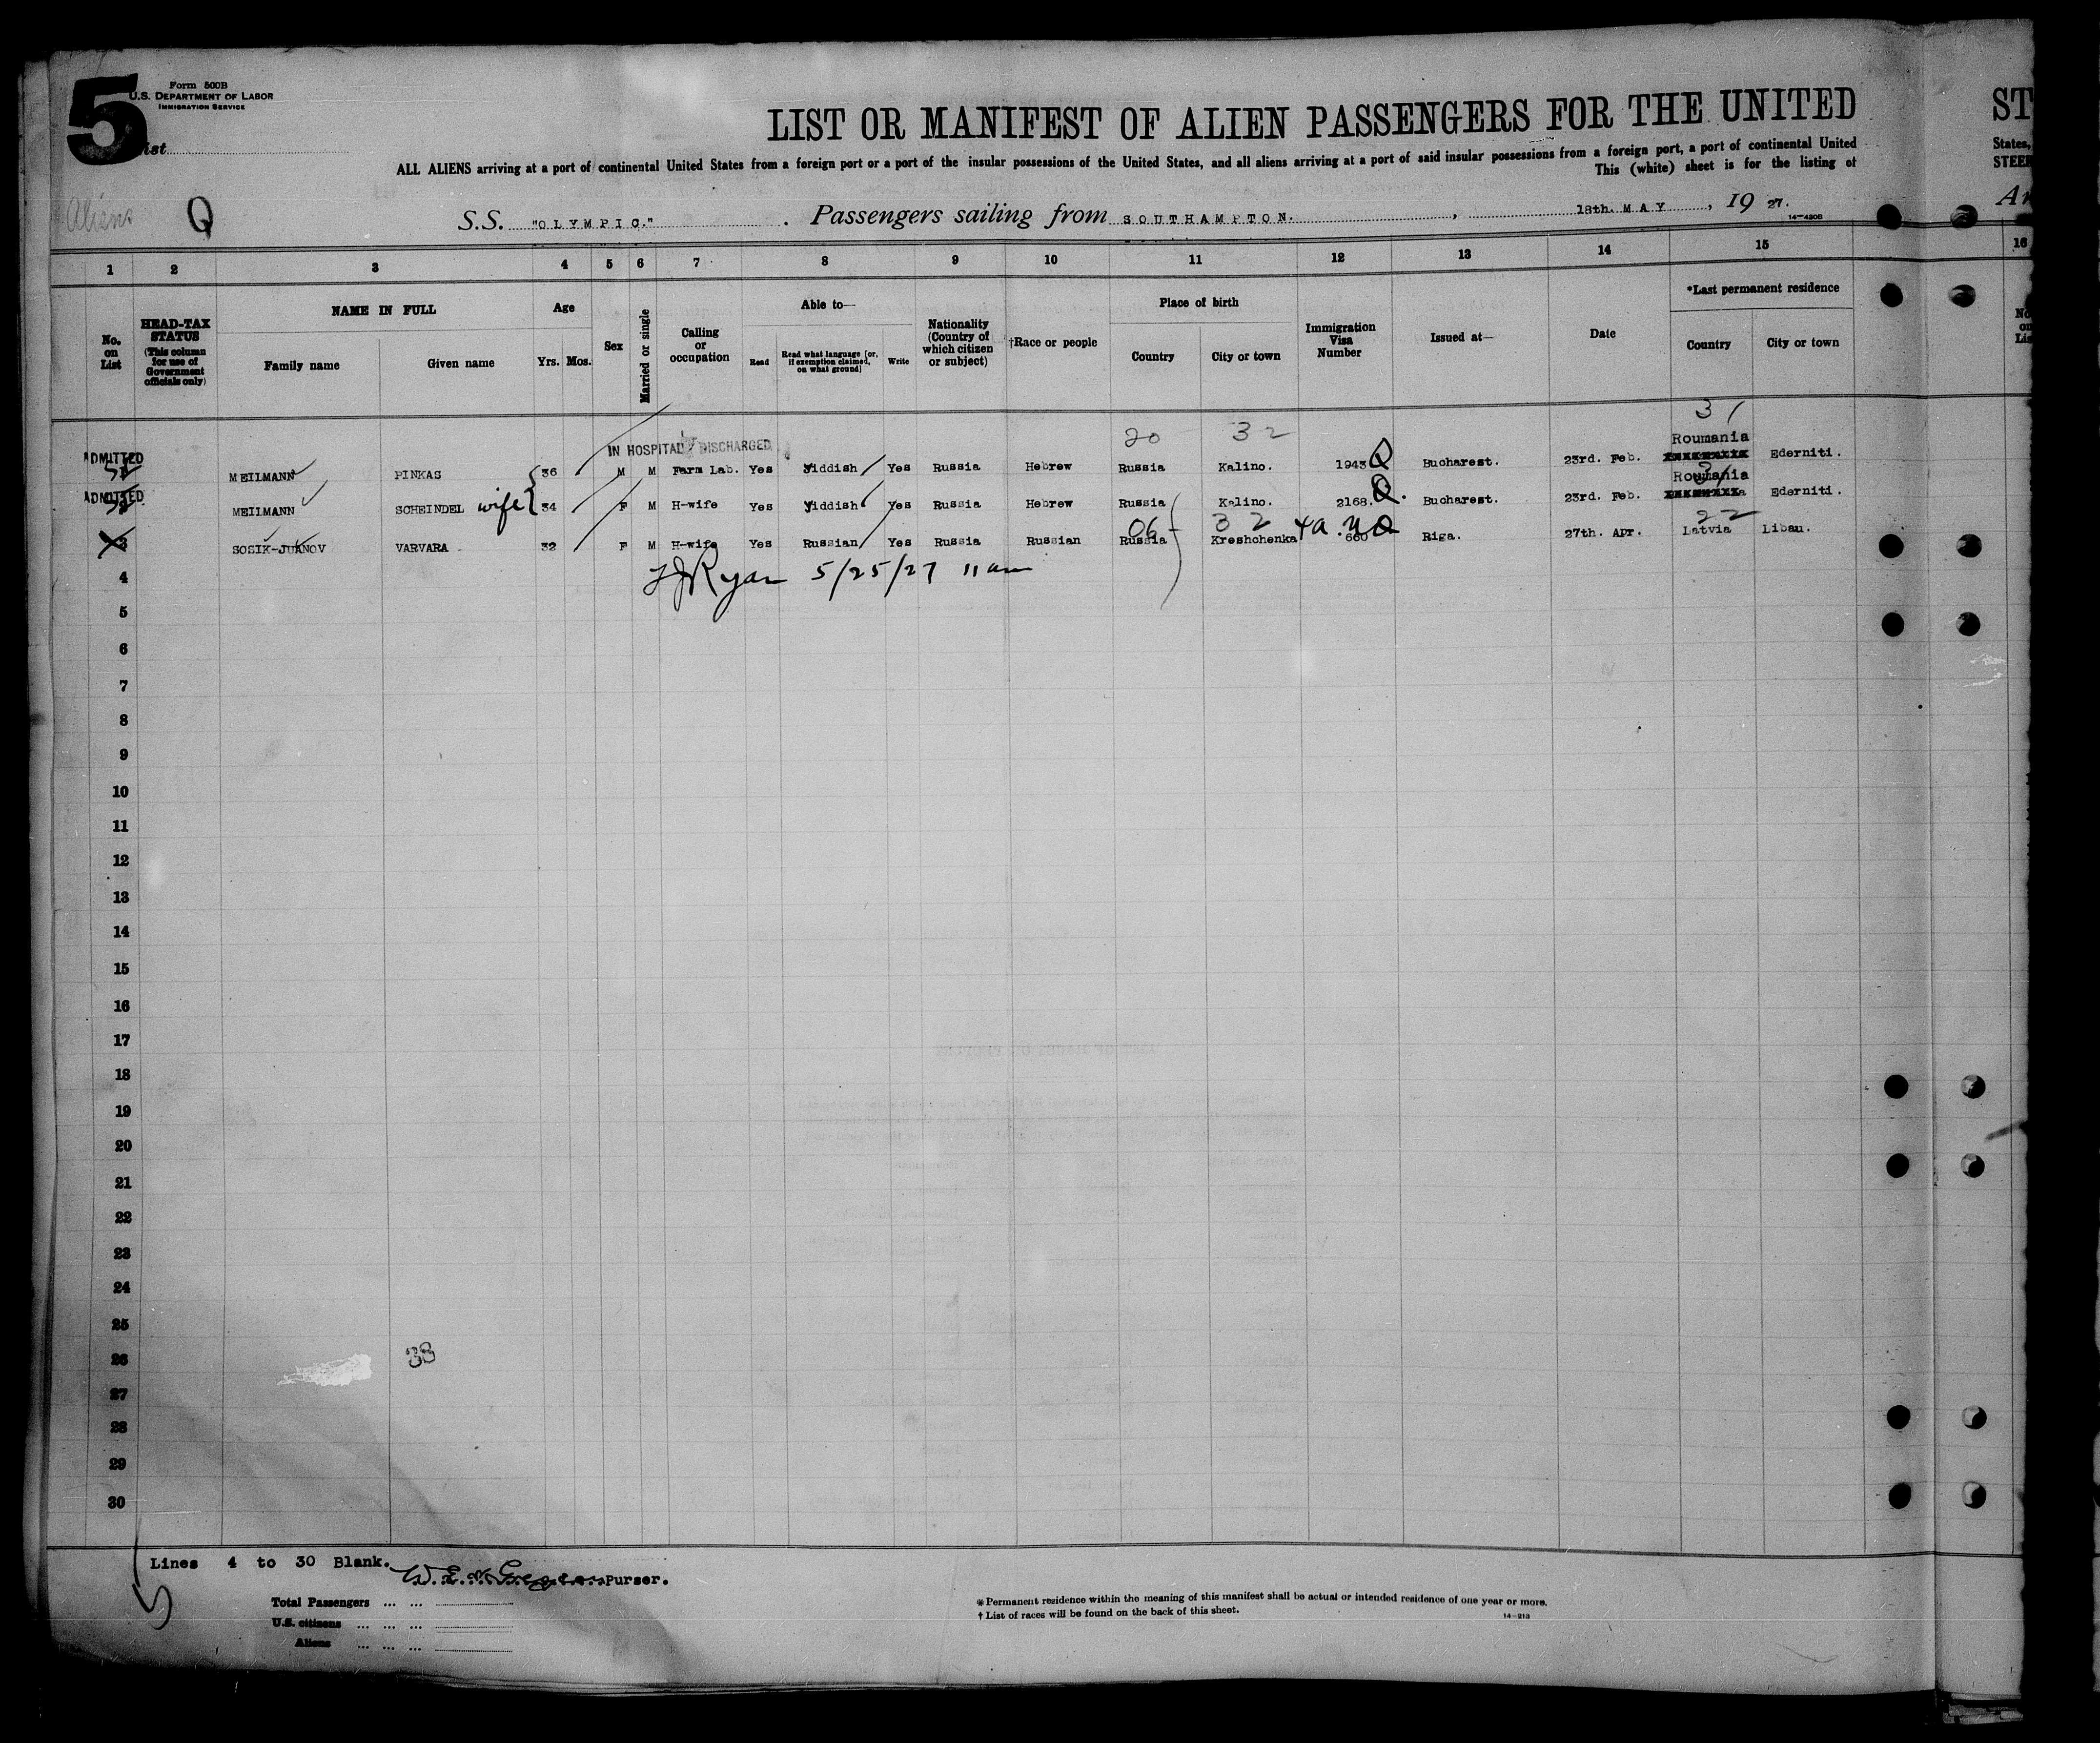 5
Form 500B
U.S. DEPARTMENT OF LABOR
IMMIGRATION SERVICE
List
LIST OR MANIFEST OF ALIEN PASSENGERS FOR THE UNITED
ST
ALL ALIENS arriving at a port of continental United States from a foreign port or a port of the insular possessions of the United States, and all aliens arriving at a port of said insular possessions from a foreign port, a port of continental United
States,
This (white) sheet is for the listing of
STEER
Aliens Q
S.S. "OLYMPIC." Passengers sailing from SOUTHAMPTON. , 18th. MAY , 19 27.
Ar
14—480B
1 2 3 4 5 6 7 8 9 10 11 12 13 14 15 16
No. on List
HEAD-TAX STATUS (This column for use of Government officials only)
NAME IN FULL
Family name Given name
Age
Yrs. Mos.
Sex
Married or single
Calling or occupation
Able to—
Read Read what language [or, if exemption claimed, on what ground] Write
Nationality (Country of which citizen or subject)
†Race or people
Place of birth
Country City or town
Immigration Visa Number
Issued at—
Date
*Last permanent residence
Country City or town
No. on Lis
20 32 31
IN HOSPITAL DISCHARGED
Roumania
ADMITTED MEILMANN PINKAS 36 M M Farm Lab. Yes Yiddish Yes Russia Hebrew Russia Kalino. 1943 Q Bucharest. 23rd. Feb. Ederniti.
Roumania
ADMITTED MEILMANN SCHEINDEL wife 34 F M H-wife Yes Yiddish Yes Russia Hebrew Russia Kalino. 2168. Q. Bucharest. 23rd. Feb. Ederniti.
06 32 22
3 SOSIK-JUKNOV VARVARA 32 F M H-wife Yes Russian Yes Russia Russian Russia Kreshchenka 660 Riga. 27th. Apr. Latvia Libau.
Ryan 5/25/27 11 am
4
5
6
7
8
9
10
11
12
13
14
15
16
17
18
19
20
21
22
23
24
25
26
33
27
28
29
30
Lines 4 to 30 Blank.
Purser.
Total Passengers ... ...
U.S. citizens ... ... ...
Aliens ... ... ...
* Permanent residence within the meaning of this manifest shall be actual or intended residence of one year or more.
† List of races will be found on the back of this sheet.
14—213